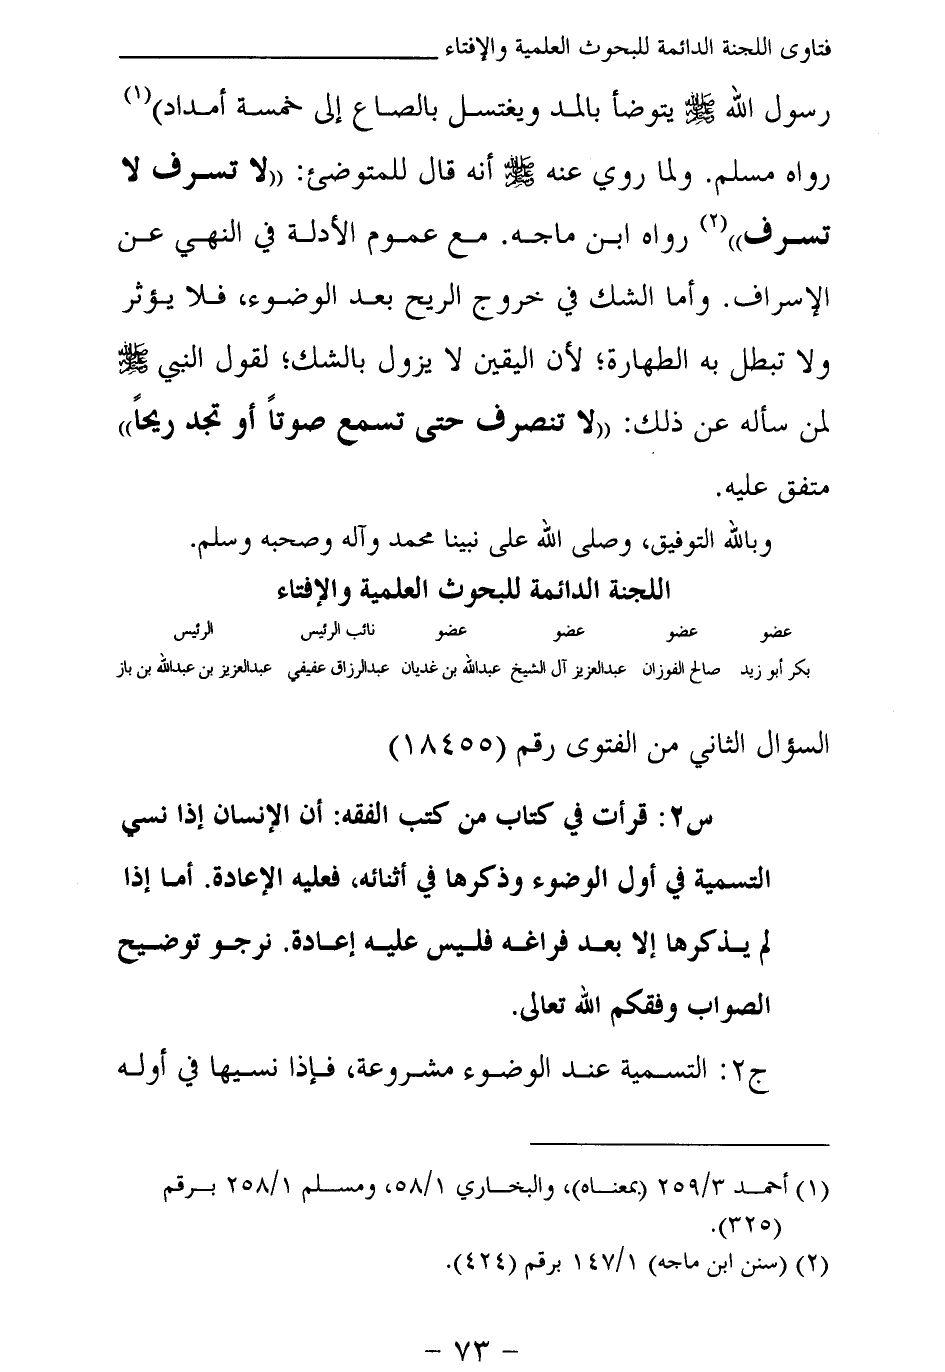 فتاوى اللجنة الدائمة للبحوث العلمية والإفتاء
رسول الله ﷺ يتوضأ بالمد ويغتسل بالصاع إلى خمسة أمداد)(١)
رواه مسلم. ولما روي عنه ﷺ أنه قال للمتوضئ: ((لا تسرف لا
تسرف))(٢) رواه ابن ماجه. مع عموم الأدلة في النهي عن
الإسراف. وأما الشك في خروج الريح بعد الوضوء، فلا يؤثر
ولا تبطل به الطهارة؛ لأن اليقين لا يزول بالشك؛ لقول النبي ﷺ
لمن سأله عن ذلك: ((لا تنصرف حتى تسمع صوتاً أو تجد ريحاً))
متفق عليه.
وبالله التوفيق، وصلى الله على نبينا محمد وآله وصحبه وسلم.
اللجنة الدائمة للبحوث العلمية والإفتاء
عضو عضو عضو عضو نائب الرئيس الرئيس
بكر أبو زيد صالح الفوزان عبدالعزيز آل الشيخ عبدالله بن غديان عبدالرزاق عفيفي عبدالعزيز بن عبدالله بن باز
السؤال الثاني من الفتوى رقم (١٨٤٥٥)
س٢: قرأت في كتاب من كتب الفقه: أن الإنسان إذا نسي
التسمية في أول الوضوء وذكرها في أثنائه، فعليه الإعادة. أما إذا
لم يذكرها إلا بعد فراغه فليس عليه إعادة. نرجو توضيح
الصواب وفقكم الله تعالى.
ج٢: التسمية عند الوضوء مشروعة، فإذا نسيها في أوله
(١) أحمد ٢٥٩/٣ (بمعناه)، والبخاري ٥٨/١، ومسلم ٢٥٨/١ برقم
(٣٢٥).
(٢) (سنن ابن ماجه) ١٤٧/١ برقم (٤٢٤).
- ٧٣ -